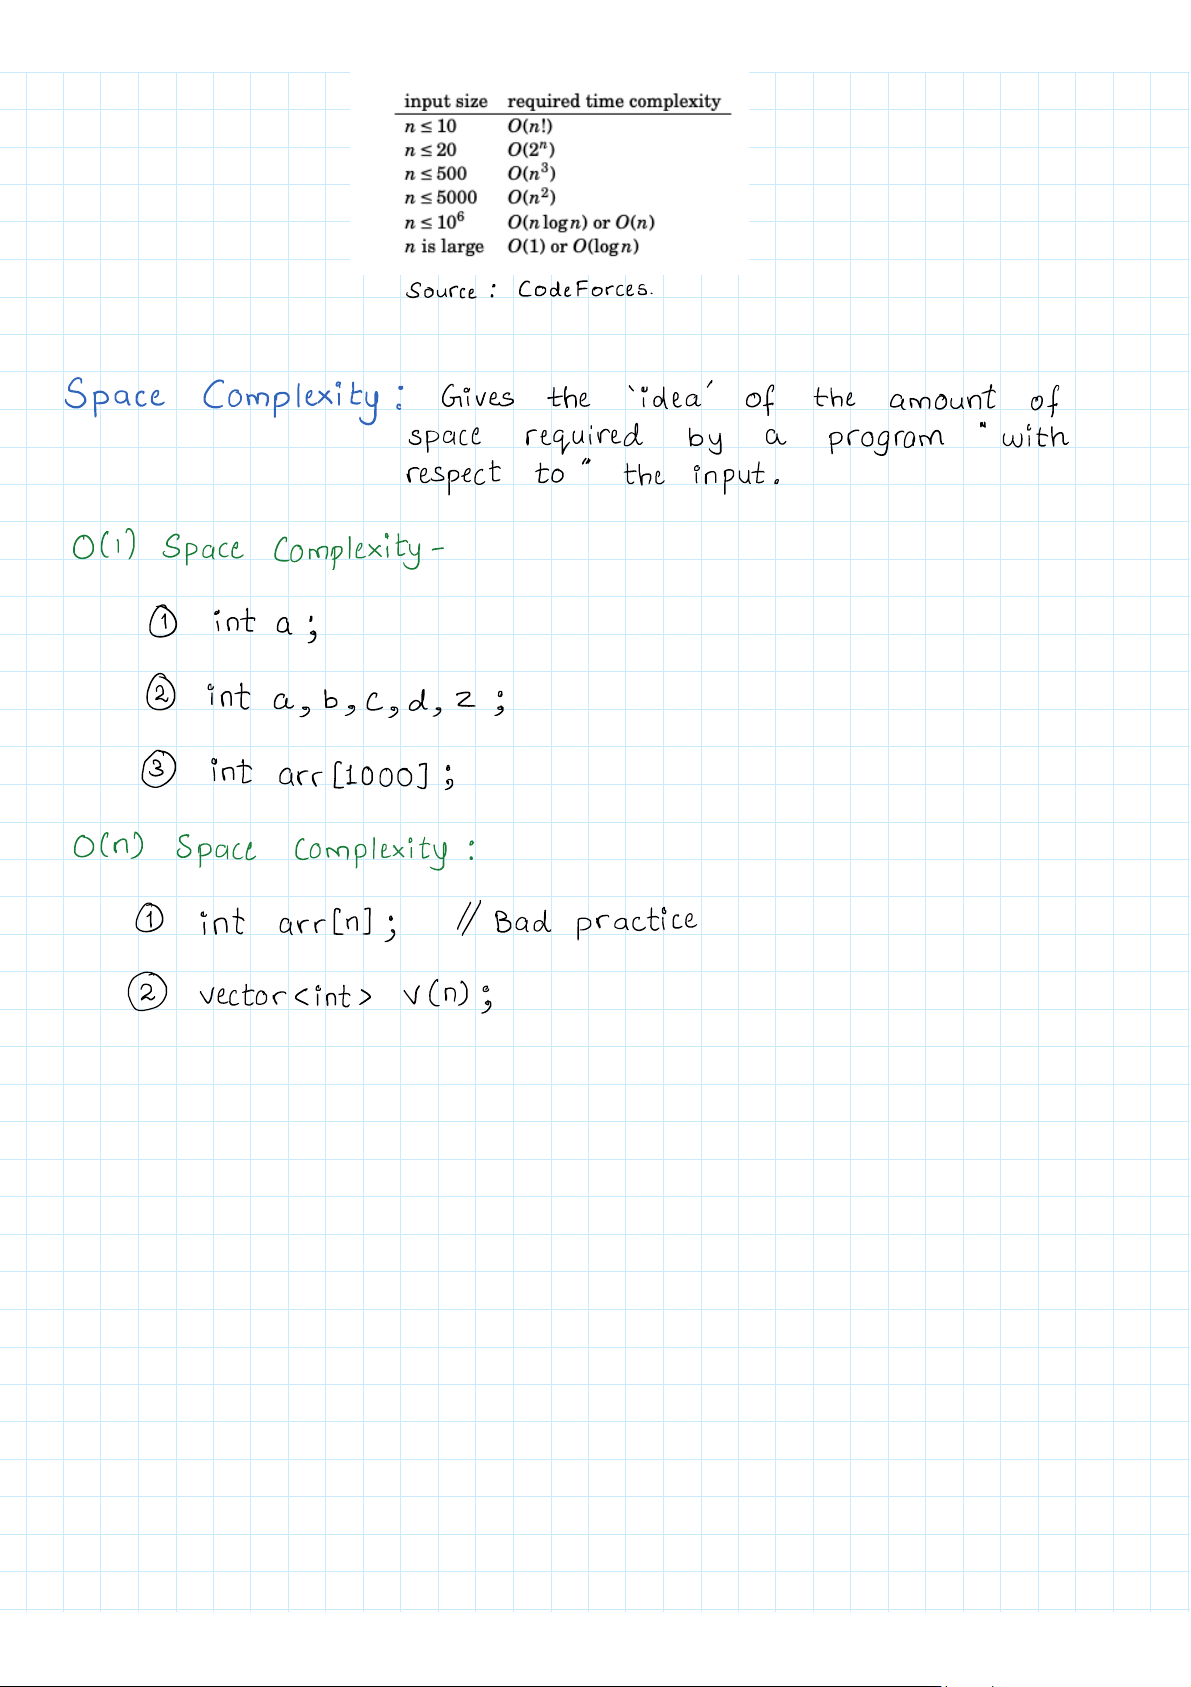 input size required time complexity
n ≤ 10 O(n!)
n ≤ 20 O(2ⁿ)
n ≤ 500 O(n³)
n ≤ 5000 O(n²)
n ≤ 10⁶ O(n log n) or O(n)
n is large O(1) or O(log n)
Source : CodeForces.
Space Complexity : Gives the `idea´ of the amount of
space required by a program "with
respect to" the input.
O(1) Space Complexity -
① int a ;
② int a, b, c, d, z ;
③ int arr[1000] ;
O(n) Space Complexity :
① int arr[n] ; // Bad practice
② vector<int> v(n) ;